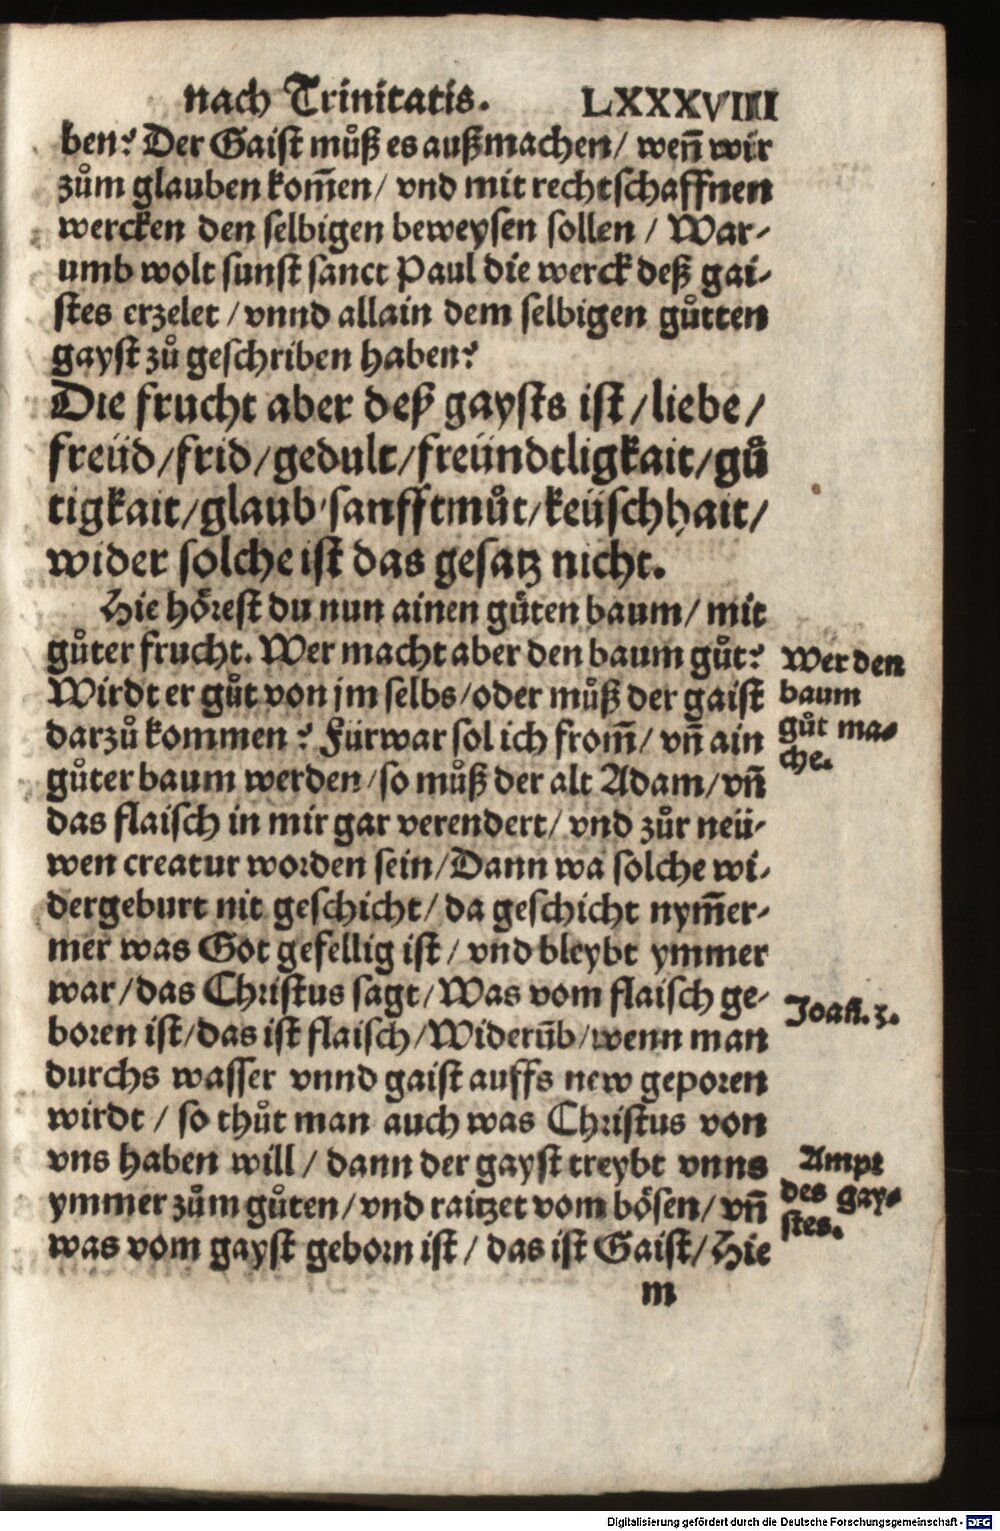 nach Trinitatis. LXXXVIIII
ben? Der Gaist můß es außmachen/ weñ wir
zům glauben kom̃en/ vnd mit rechtschaffnen
wercken den selbigen beweysen sollen / War-
umb wolt sunst sanct Paul die werck deß gai-
stes erzelet / vnnd allain dem selbigen gůtten
gayst zů geschriben haben?
Die frucht aber deß gaysts ist /liebe/
freüd/frid/gedult/freündtligkait/gů
tigkait/glaub/sanfftmůt/keüschhait/
wider solche ist das gesatz nicht.
Hie hörest du nun ainen gůten baum/ mit
gůter frucht. Wer macht aber den baum gůt?
Wirdt er gůt von jm selbs/oder můß der gaist
darzů kommen? Fürwar sol ich from̃/ vñ ain
gůter baum werden/so můß der alt Adam/vñ
das flaisch in mir gar verendert/ vnd zůr neü-
wen creatur worden sein/Dann wa solche wi-
dergeburt nit geschicht/ da geschicht nym̃er-
mer was Got gefellig ist / vnd bleybt ymmer
war/das Christus sagt/Was vom flaisch ge-
boren ist/das ist flaisch/Widerũb/wenn man
durchs wasser vnnd gaist auffs new geporen
wirdt / so thůt man auch was Christus von
vns haben will / dann der gayst treybt vnns
ymmer zům gůten/vnd raitzet vom bösen/ vñ
was vom gayst geborn ist / das ist Gaist/ Hie
m
Wer den
baum
gůt ma-
che.
Joañ. 3.
Ampt
des gay-
stes.
Digitalisierung gefördert durch die Deutsche Forschungsgemeinschaft - DFG